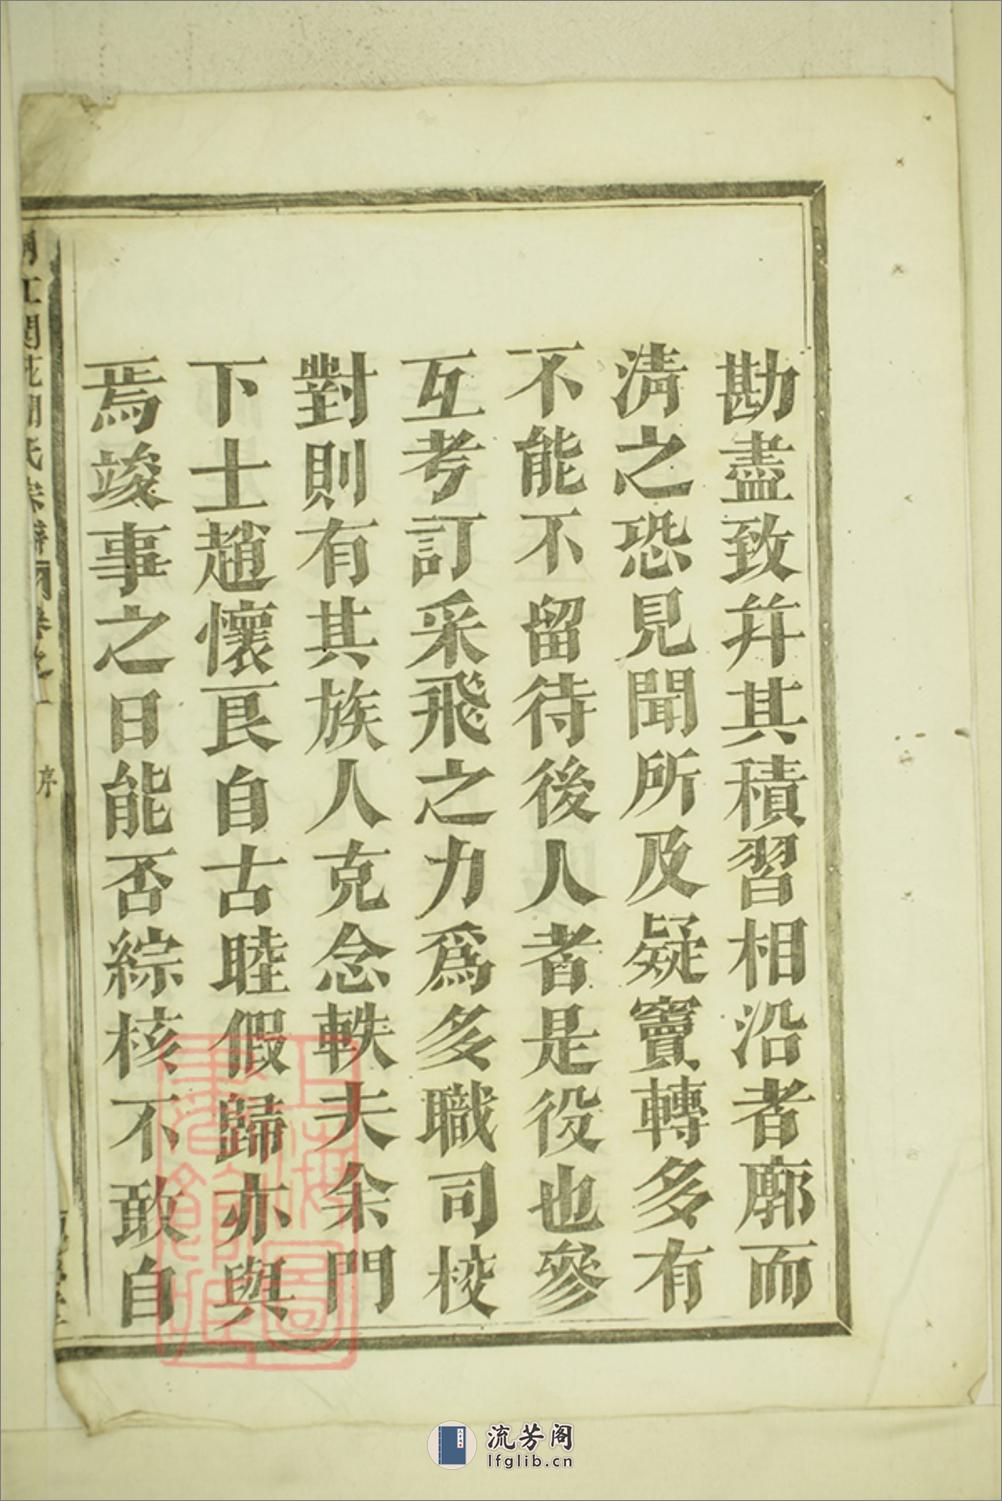 勘盡致幷其積習相沿者廓而
淸之恐見聞所及疑竇轉多有
不能不留待後人者是役也參
互考訂采飛之力爲多職司校
對則有其族人克念軼夫余門
下士趙懷艮自古睦假歸亦與
焉竣事之日能否綜核不敢自
序
上海圖書館藏
流芳阁
lfglib.cn